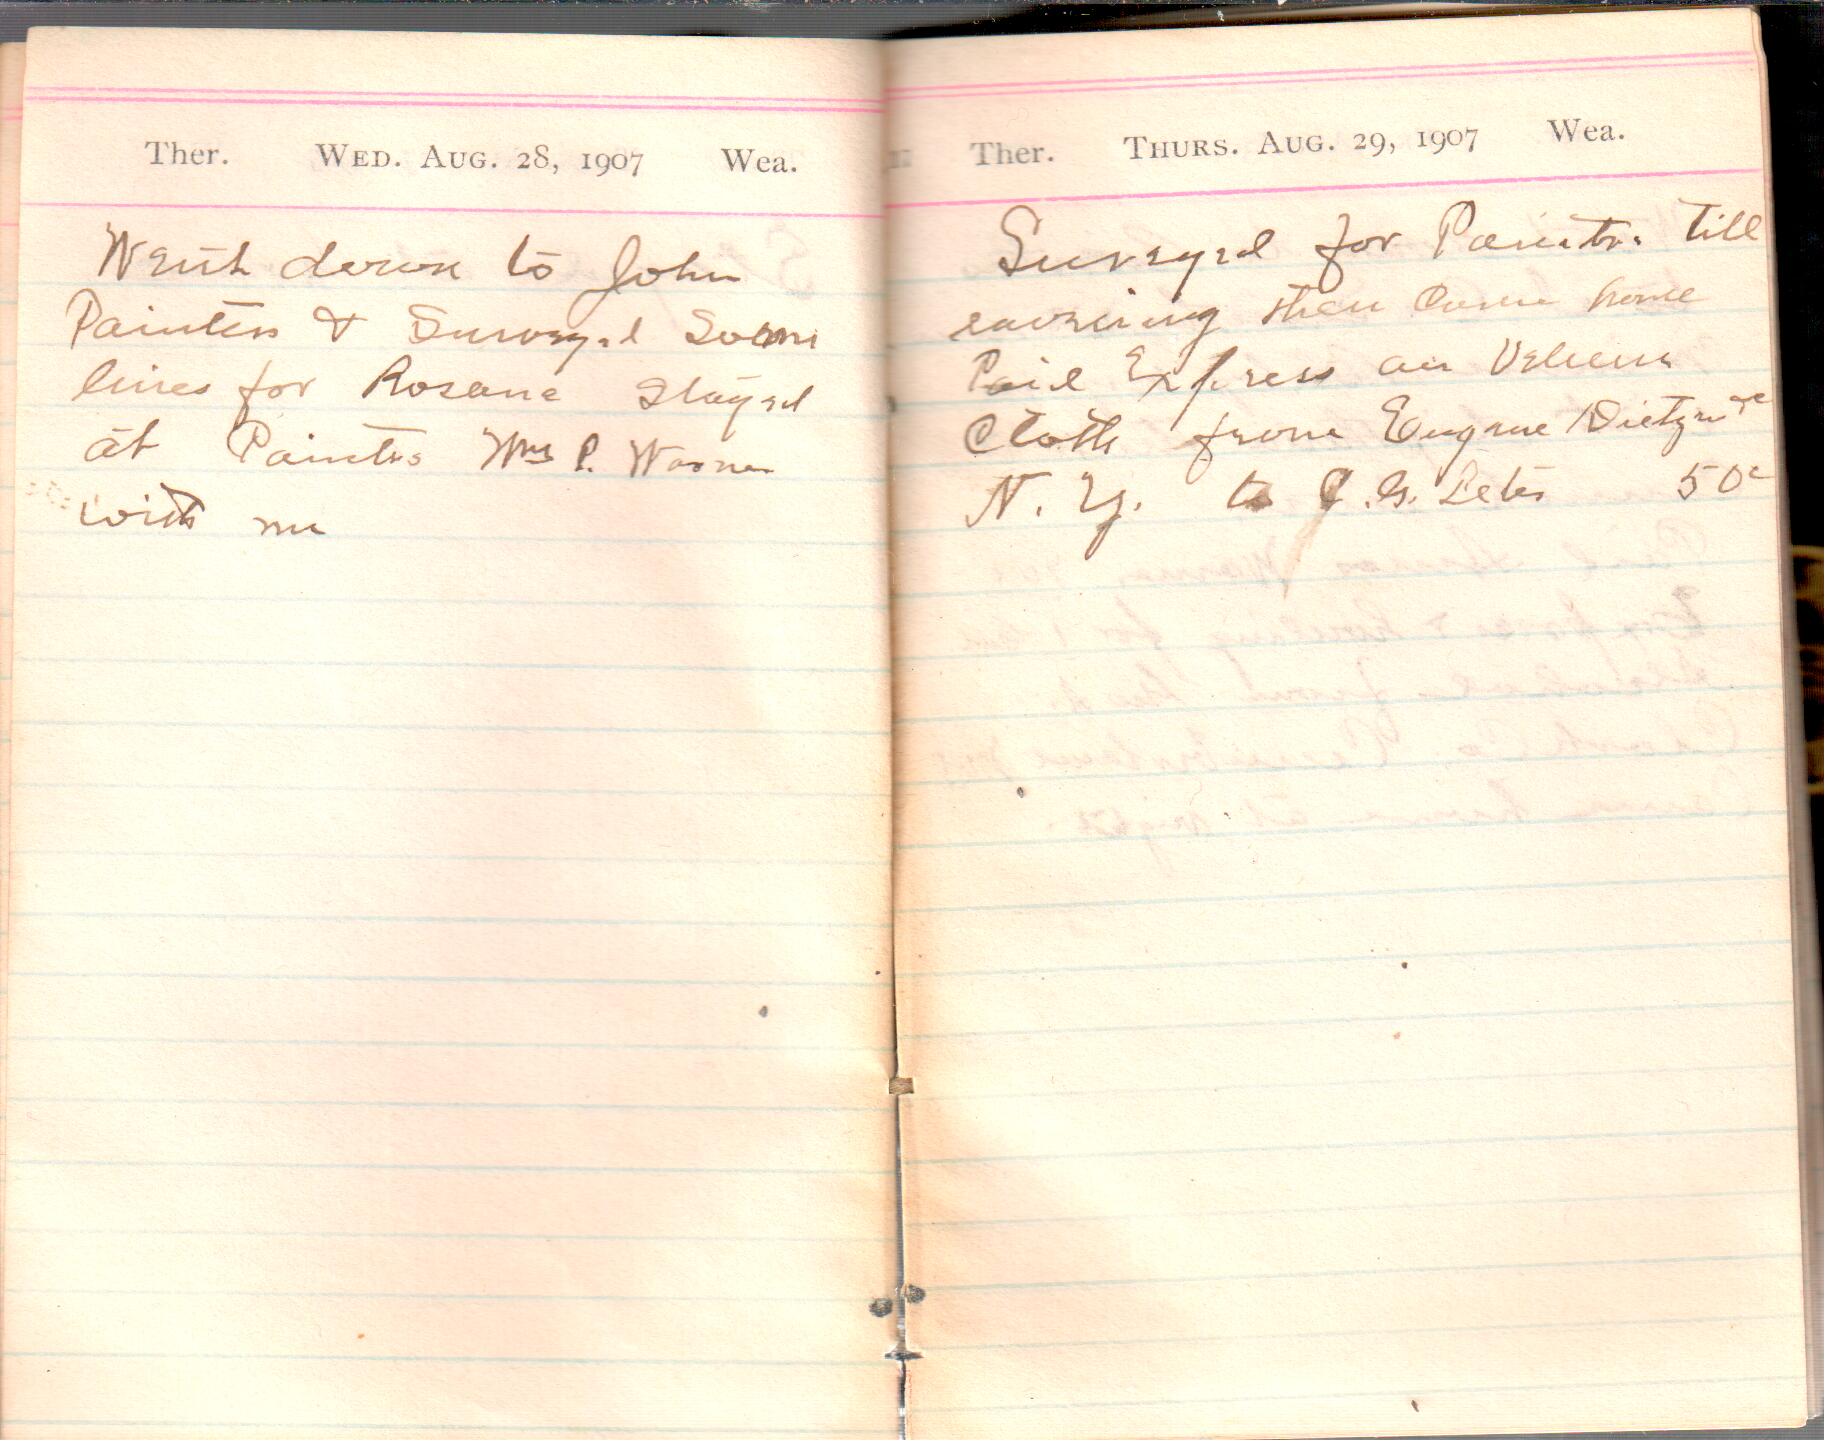 Ther. WED. AUG. 28, 1907 Wea.
Went down to John
Painters & Surveyed Some
lines for Rosane Stayed
at Painters Wm P. Warner
with me
Ther. THURS. AUG. 29, 1907 Wea.
Surveyed for Painter till
evening then Came home
Paid Express on Velum
Cloth from Eugene Dietzen
N. Y. to G. Peters 50c